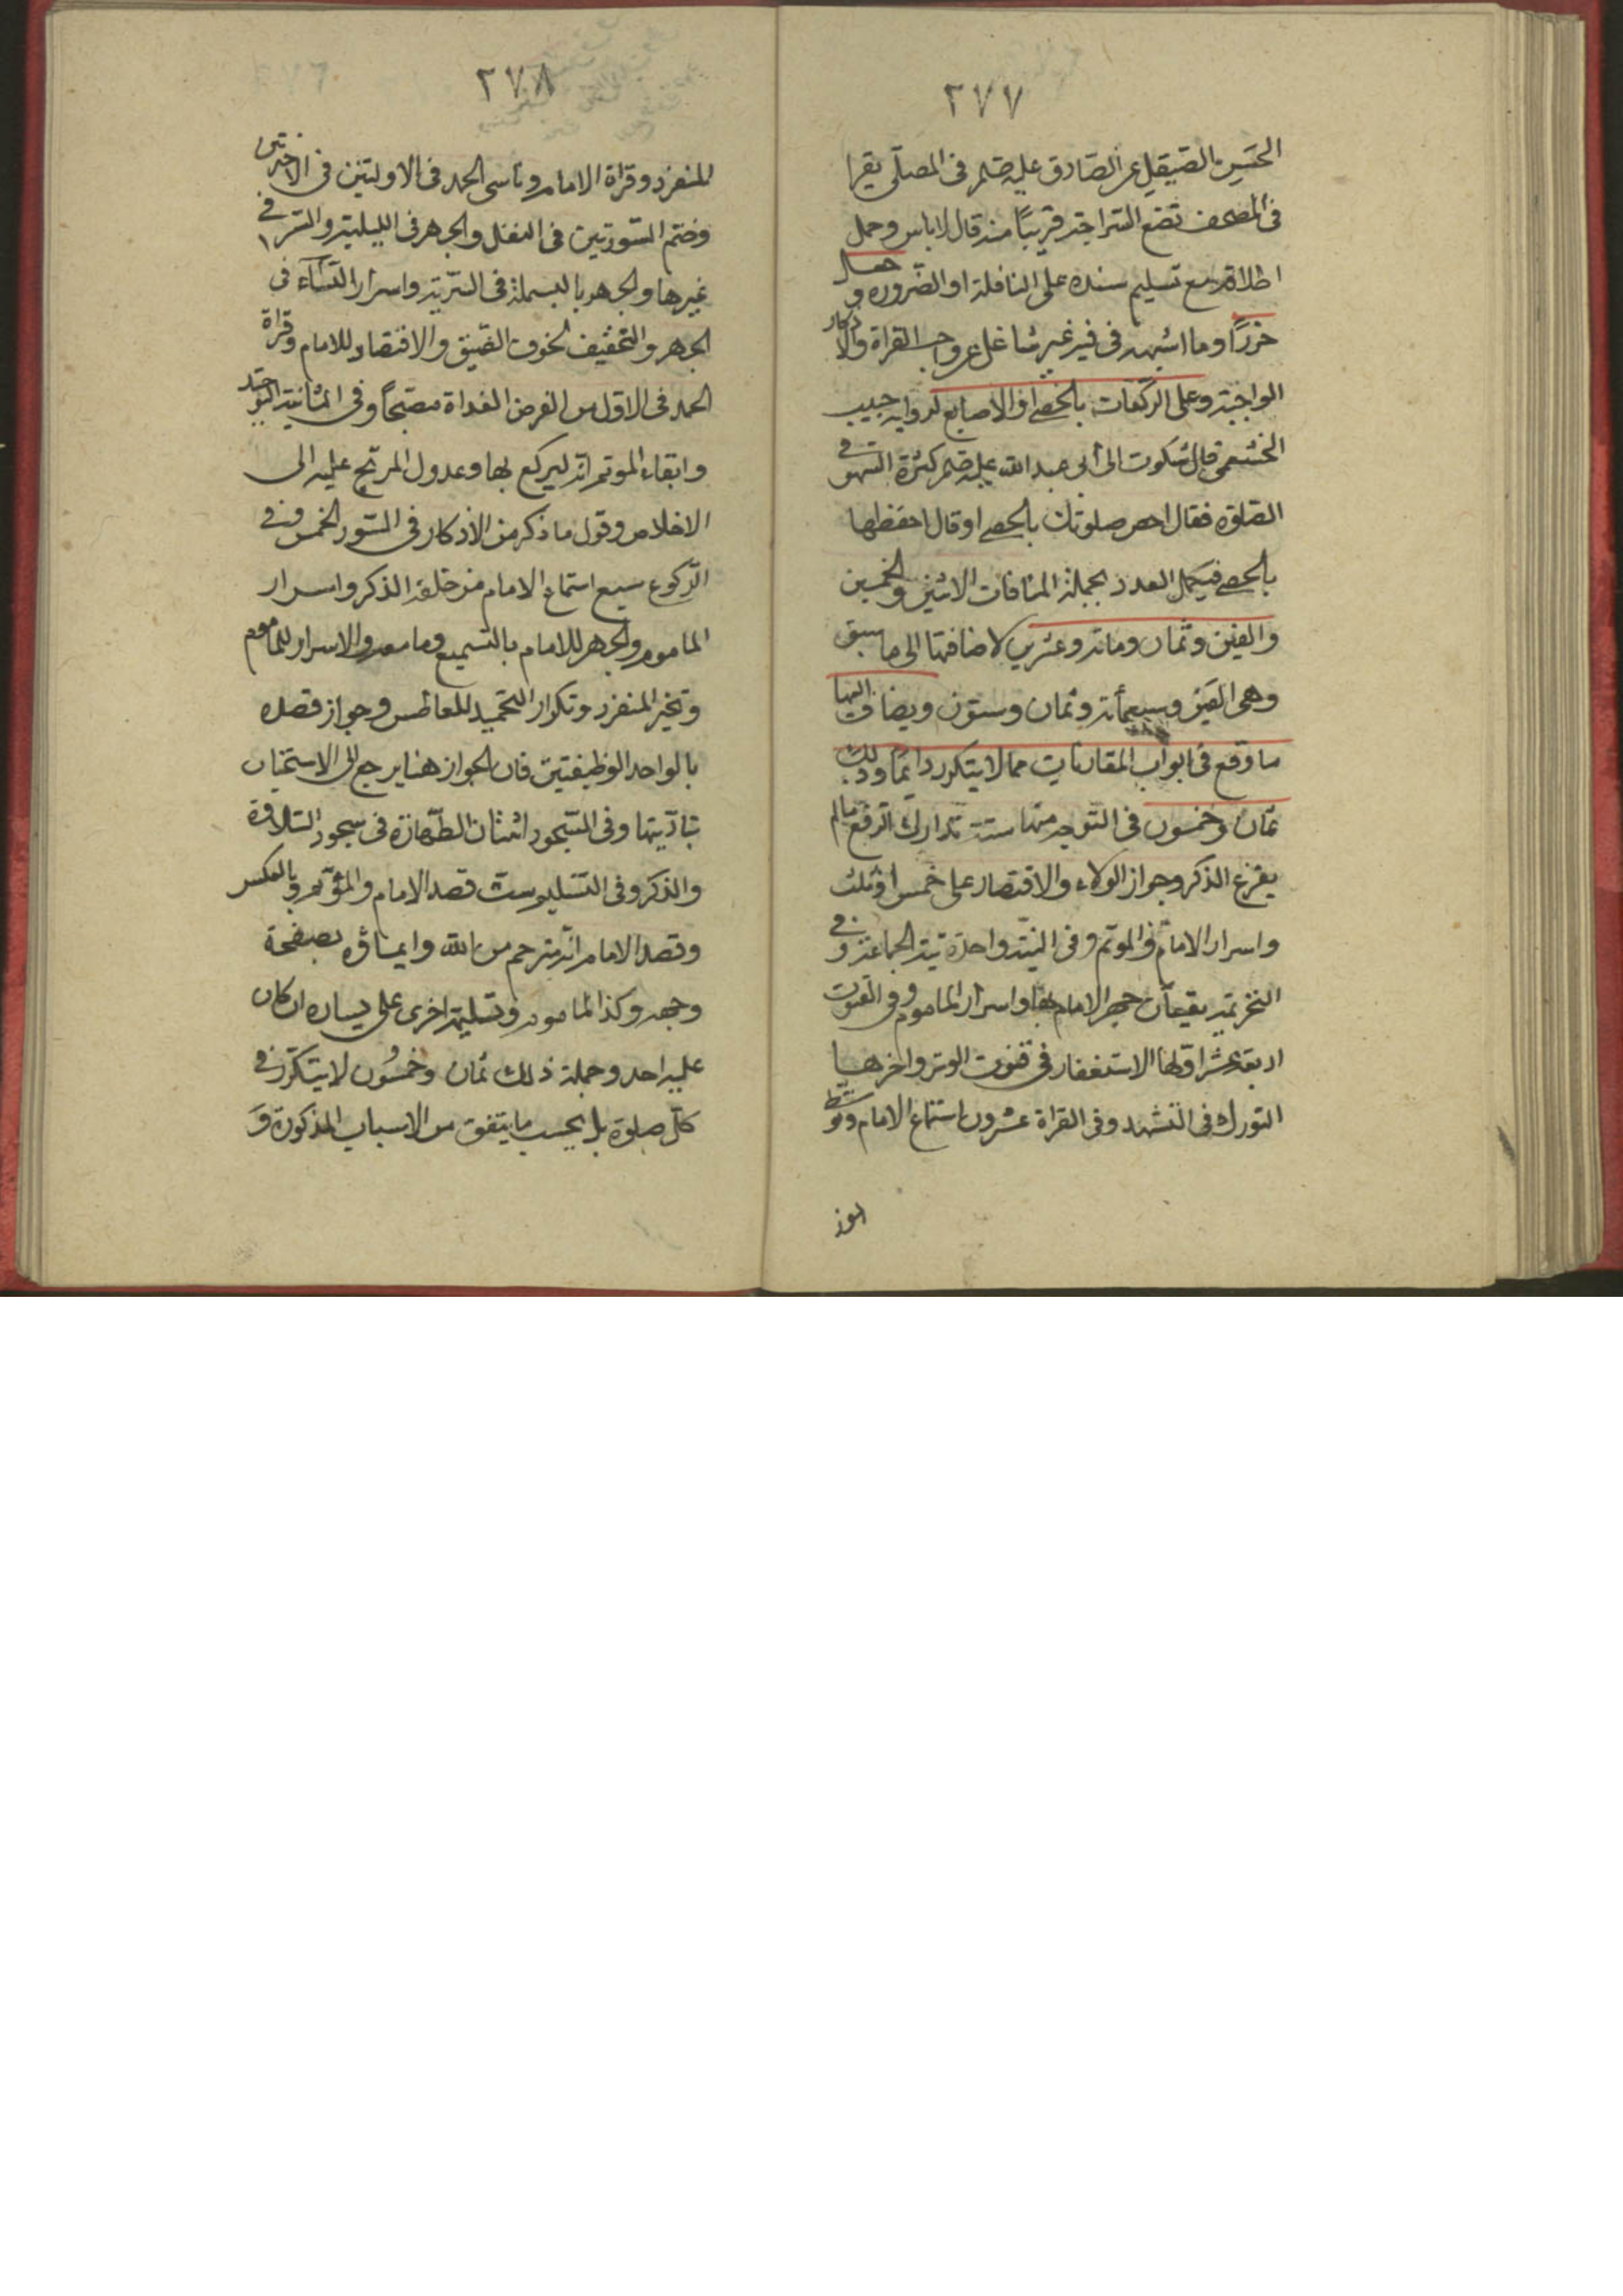 ٢٧٧
الحسن الصيقل عن الصادق عليه صلم فى المصلّى يقرا
فى المصحف تضع السراج قريبًا منه قال لا باس وحمل
اطلاقه مع تسليم سنده على النافلة او الضروره و
خرزًا وما اشبهه فى فيه غير شاغل عن واجب القراة والاذكار
الواجبة وعلى الركعات بالحصى او الاصابع لروايه حبيب
الخثعمى قال شكوت الى ابى عبد الله عليه صلم كثرة السهو فى
الصلوة فقال احص صلوتك بالحصى او قال احفظها
بالحصى فيكمل العدد بجملة المنافات الاثنين والخمسين
والفين وثمان ومائة وعشرين لاضافتها الى ما سبق
وهى الفين وسبعمأئة وثمان وستون ويضاف اليها
ما وقع فى ابواب المقارنات مما لا يتكرر دائمًا وذلك
ثمان وخمسون فى التوجه منها ستة تدارك الرفع مالم
يفرغ الذكر وجواز الولاء والاقتصار على خمس او ثلث
واسرار الامام والموتم وفى النية واحدة نية الجماعة وفى
التحريمة يقيعان جهر الامام بها واسرار الماموم وفى القنوت
اربعة عشر اولها الاستغفار فى قنوت الوتر واخرها
التورك فى التشهد وفى القراة عشرون استماع الامام وتوسط
٢٧٨
المنفرد وقراة الامام وناسى الحمد فى الاولتين فى الاخرتين
وختم السورتين فى النفل والجهر فى الليلية والسر فى
غيرها والجهر بالبسملة فى السرّية واسرار النسآء فى
الجهر والتخفيف لخوف الضيق والاقتصاد للامام وقراة
الحمد فى الاول من الفرض الغداة مصبحًا وفى الثانية التوحيد
وابقاء الموتم اية ليركع بها وعدول المرتج عليه الى
الاخلاص وقول ما ذكر من الاذكار فى السور الخمس وفى
الركوع سبع استماع الامام من خلفه الذكر واسرار
الماموم والجهر للامام بالتسميع وما معه والاسرار للماموم
وتخير المنفرد وتكرار التحميد للعاطس وجواز قصده
بالواحد الوظيفتين فان الجواز هنا يرجع الى الاستحباب
بتأديتها وفى السجود اثنثان الطهارة فى سجود التلاوة
والذكر وفى التسليم ست قصد الامام والموتم وبالعكس
وقصد الامام انه مترجم من الله وايماؤه بصفحة
وجهه وكذا الماموم وتسليمة اخرى على يساره ان كان
عليه احد وجملة ذلك ثمان وخمسون لا يتكرر فى
كل صلوة بل بحسب ما يتفق من الاسباب المذكورة وَ